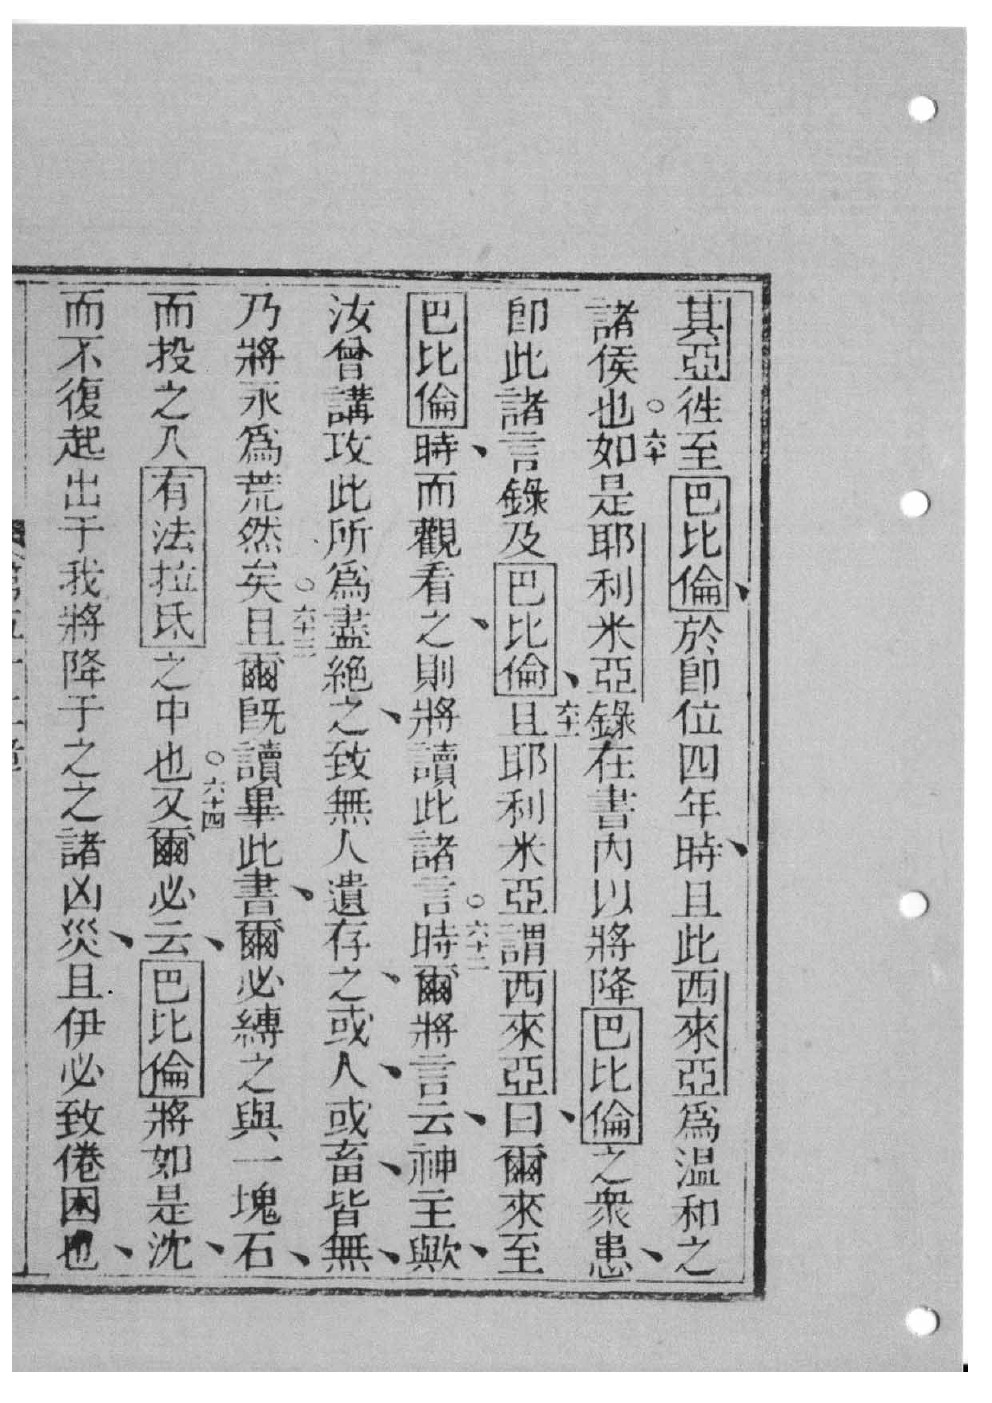 其亞徃至巴比倫、於卽位四年時、且此西來亞爲温和之
諸侯也○六十如是耶利米亞錄在書內以將降巴比倫之衆患、
卽此諸言錄及巴比倫、六十一且耶利米亞謂西來亞曰、爾來至
巴比倫時、而觀看之、則將讀此諸言○六十二時爾將言云、神主歟、
汝曾講攻此所爲盡絶之、致無人遺存之、或人、或畜、皆無、
乃將永爲荒然矣○六十三且爾旣讀畢此書、爾必縛之與一塊石、
而投之入有法拉氐之中也○六十四又爾必云、巴比倫將如是沈、
而不復起出于我將降于之之諸凶災、且伊必致倦困也、